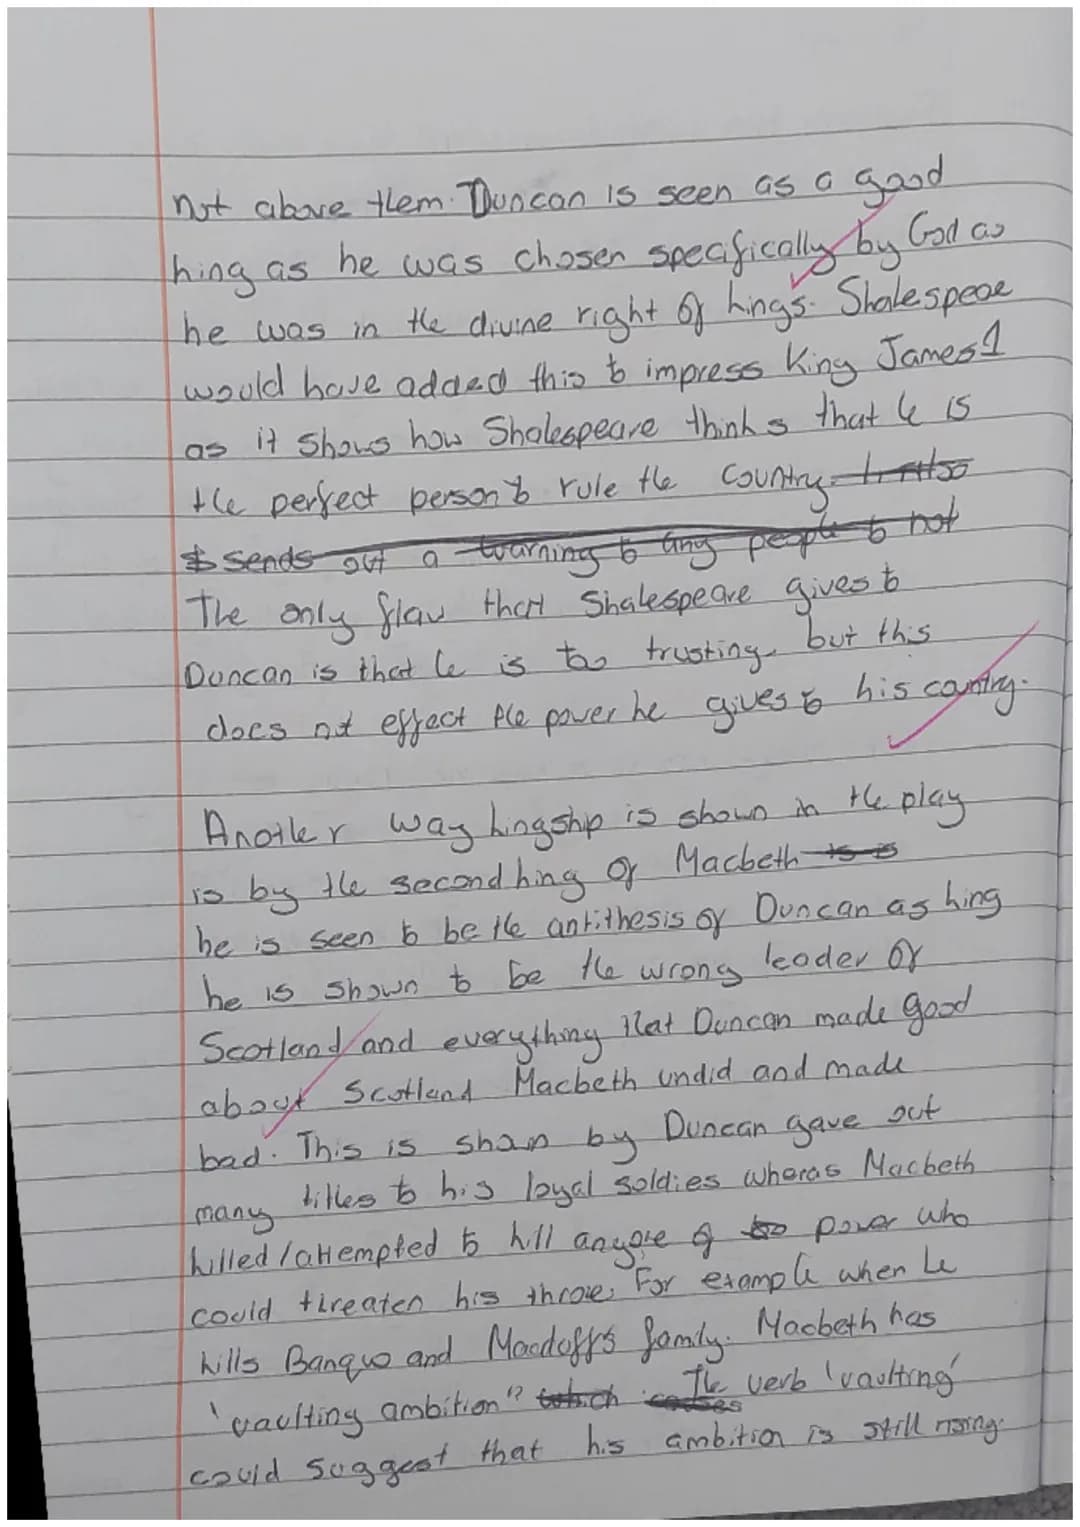 not above them. Duncan is seen as a good
king as he was chosen specifically by God as
he was in the divine right of kings. Shakespeae
would have added this to impress King James 1
as it shows how Shakespeare thinks that he is
the perfect person to rule the country. It also
sends out a warning to any people to not
The only flaw that Shakespeare gives to
Duncan is that he is too trusting, but this
does not effect the power he gives to his country.
Another way kingship is shown in the play
is by the second king of Macbeth is is
he is seen to be the antithesis of Duncan as king
he is shown to be the wrong leader of
Scotland and everything that Duncan made good
about Scotland Macbeth undid and made
bad. This is shown by Duncan gave out
many titles to his loyal soldies wheras Macbeth
killed/attempted to kill anyone of too power who
could threaten his throne. For example when he
kills Banquo and Macduff's family. Macbeth has
'vaulting ambition" which The verb 'vaulting'
could suggest that his ambition is still rising.